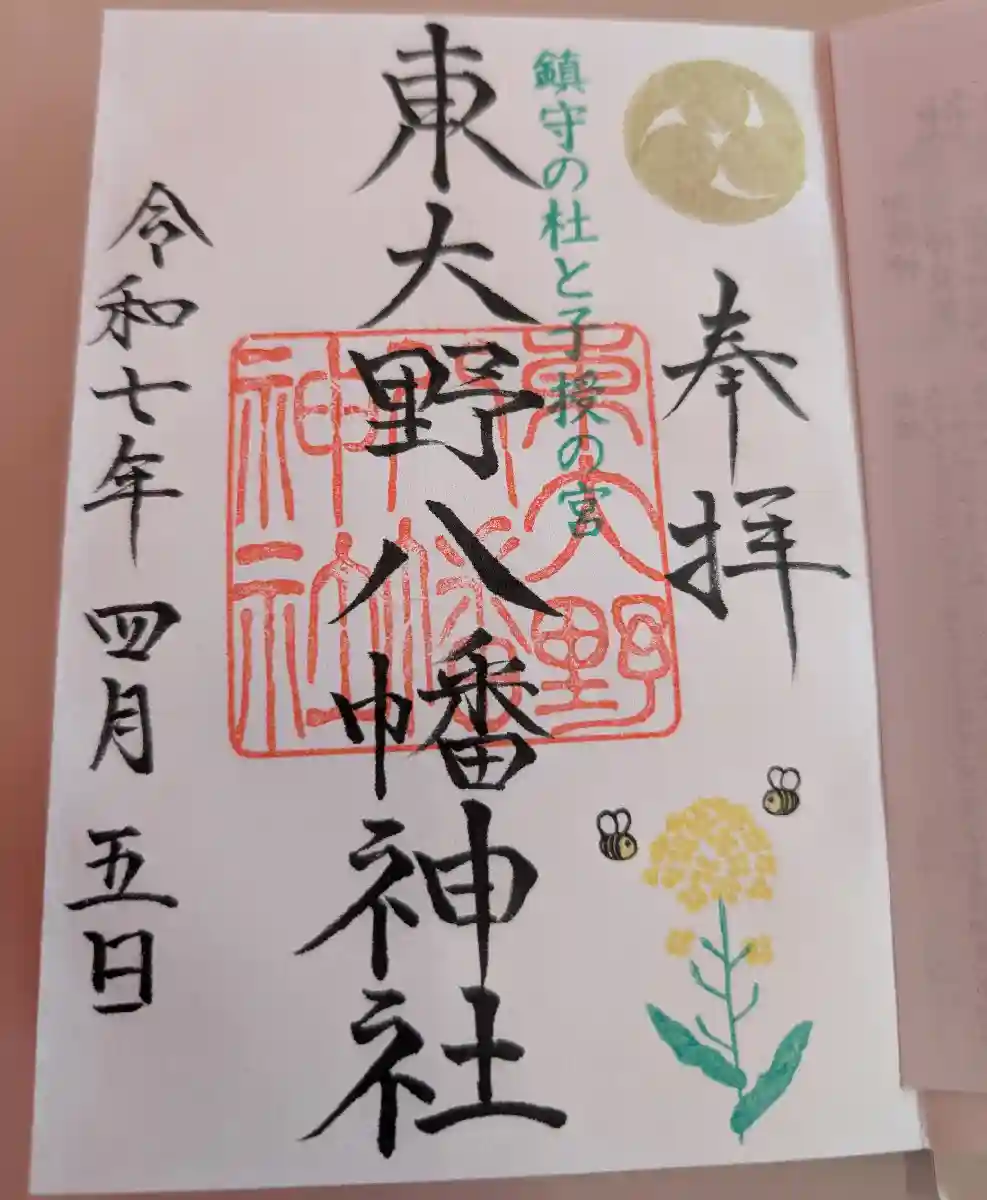 奉拝
鎮守の杜と子授の宮
東大野八幡神社
東大野
八幡
神社
令和七年 四月 五日